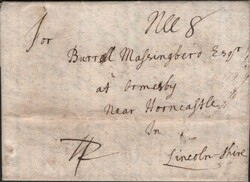 Nll 8
For
Burrel Massingberd Esqr
at Ormesby
Near Horncastle
In
Lincoln-shire